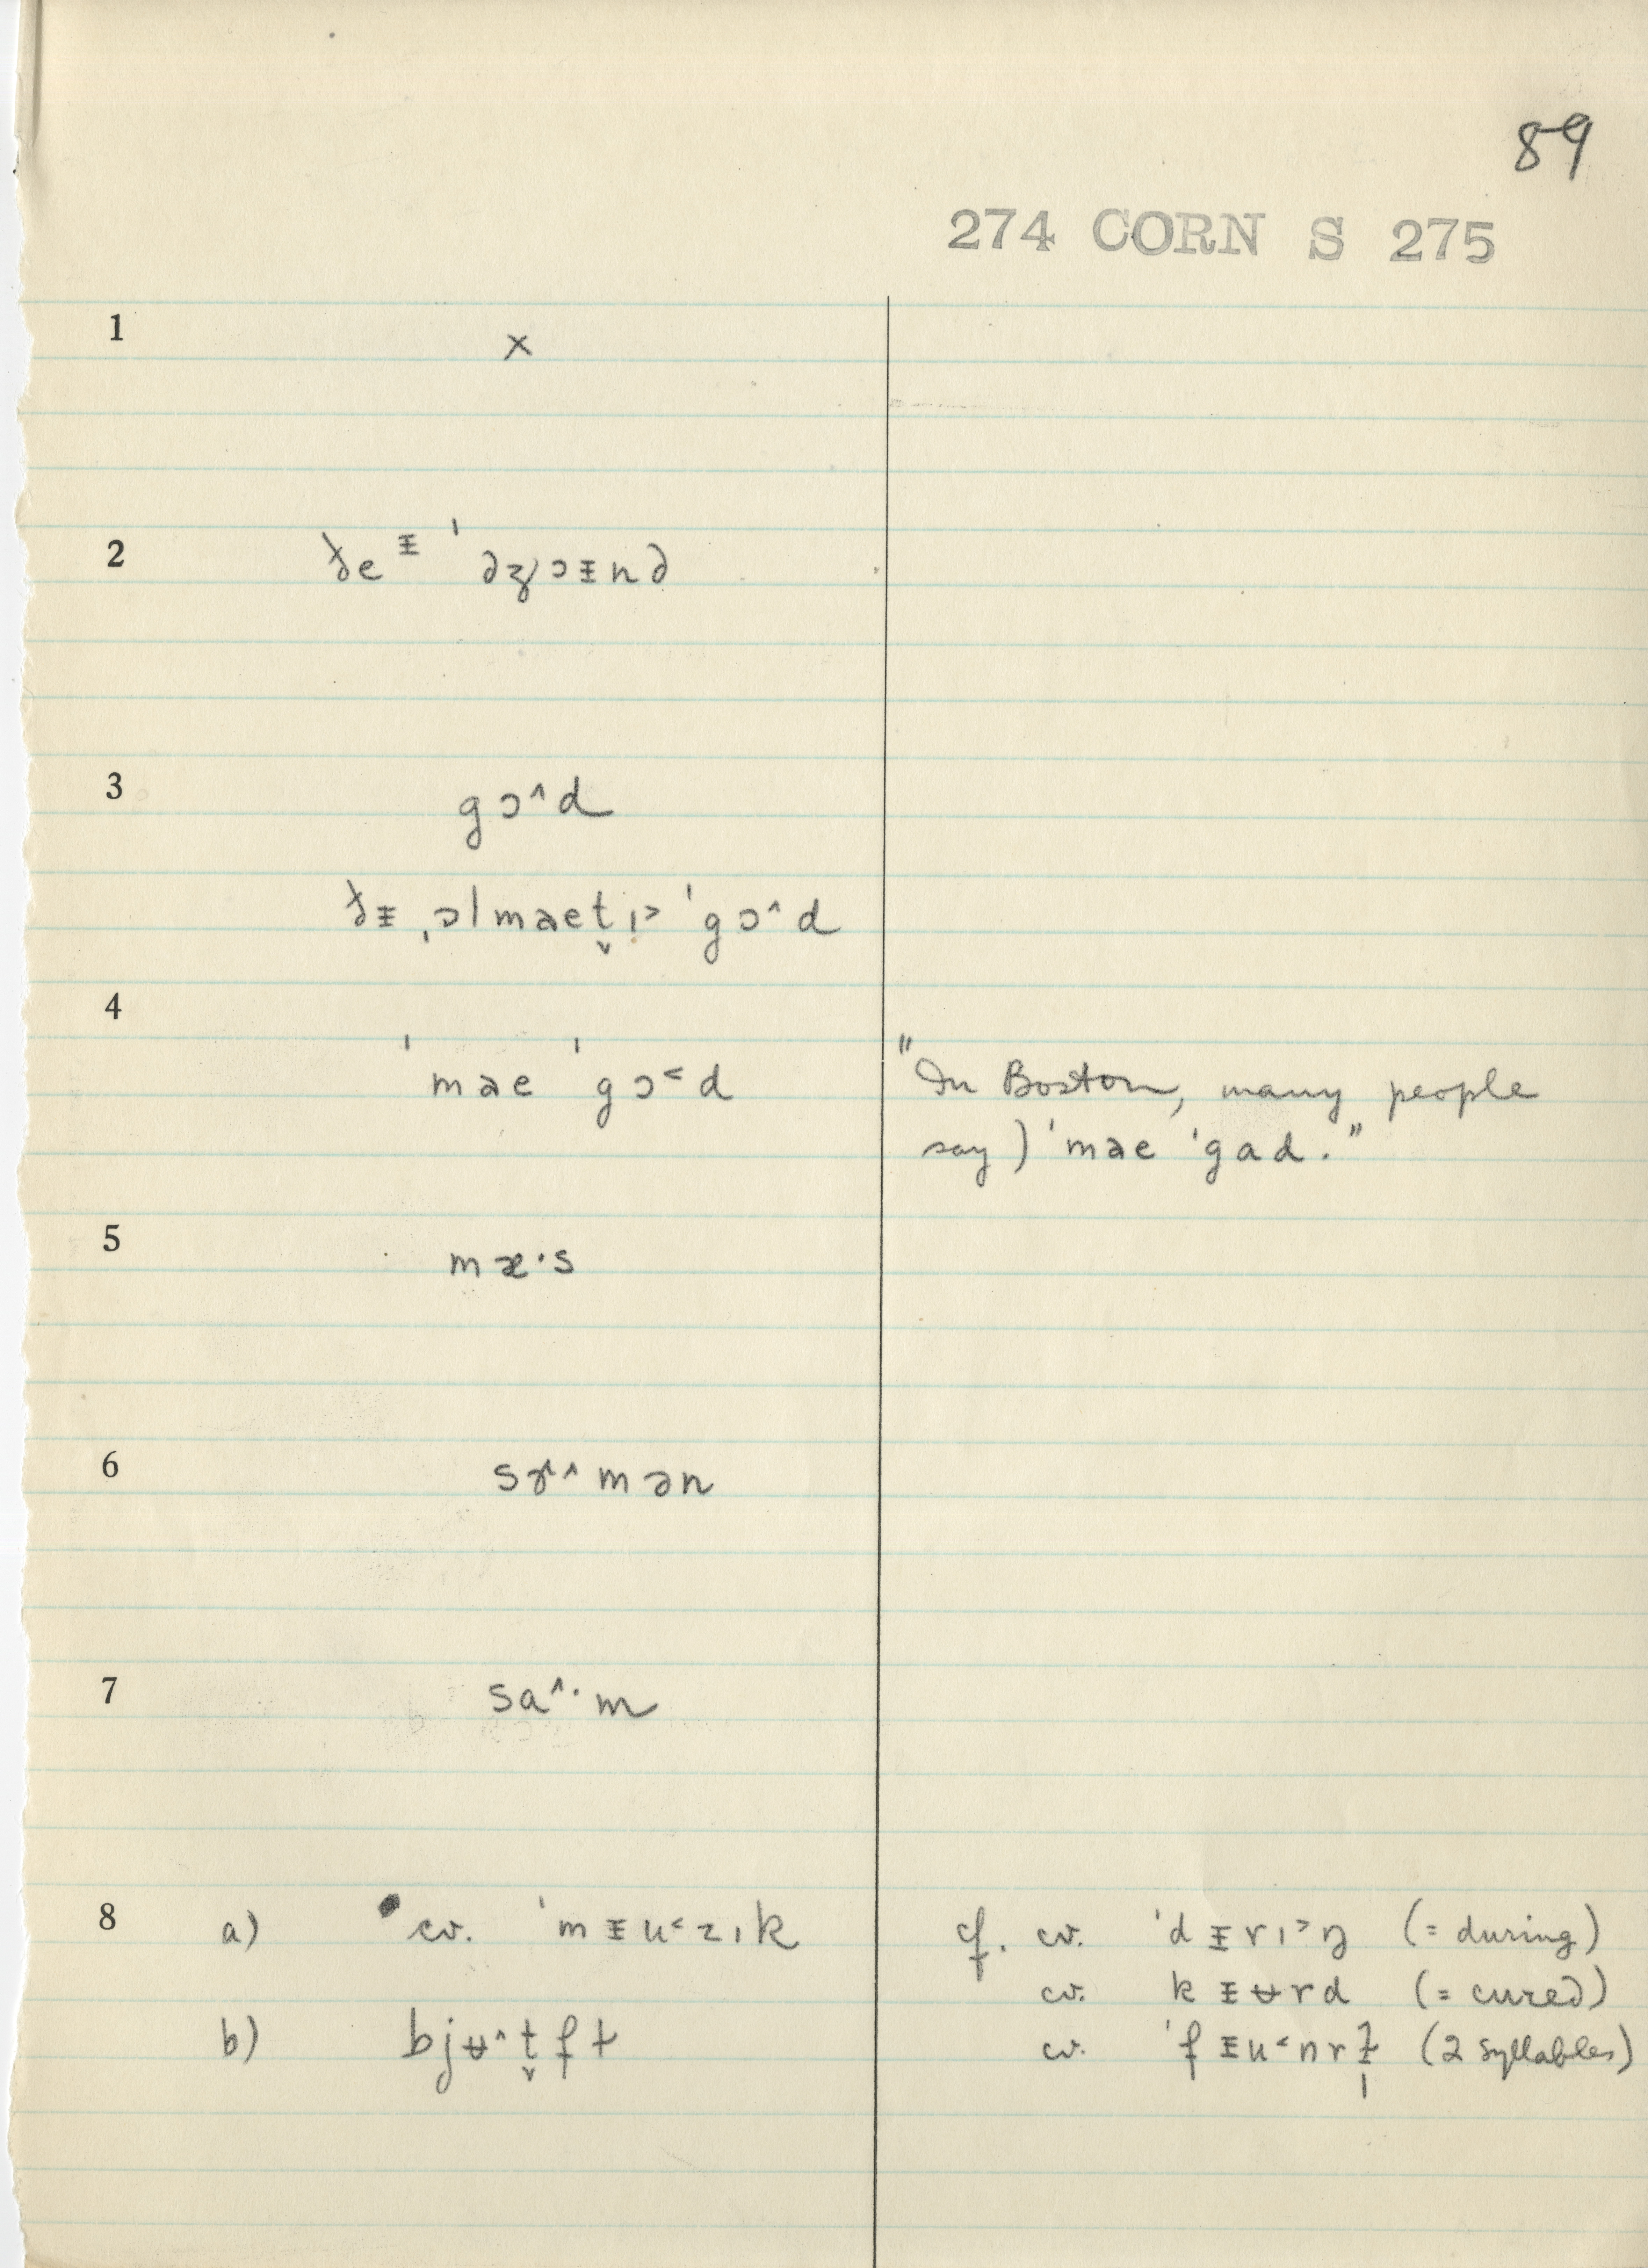 89
274 CORN S 275
1 ×
2 ðeᵻ ˈəʒɔᵻnd
3 gɔ^d
ðᵻ ˌɔlmaet̬ɪ> ˈgɔ^d
4
ˈmae ˈgɔ<d "In Boston, many people
say) ˈmae ˈgad."
5 mæ·s
6 sɤ^mən
7 sa^·m
8 a) cv. ˈmᵻu<zɪk cf. cv. ˈdᵻrɪ>ŋ (= during)
cv. kᵻʉrd (= cured)
b) bjʉ^t̬fɫ cv. ˈfᵻu<nrɫ̩ (2 syllables)